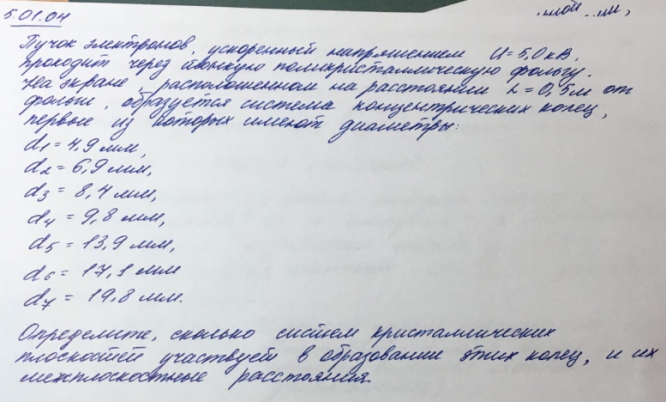 5.01.04
Пучок электронов, ускоренный напряжением U=5,0 кВ,
проходит через тонкую поликристаллическую фольгу.
На экране, расположенном на расстоянии L=0,5м от
фольги, образуется система концентрических колец,
первые из которых имеют диаметры:
d1=4,9 мм,
d2=6,9 мм,
d3=8,4 мм,
d4=9,8 мм,
d5=13,9 мм,
d6=17,1 мм
d7=19,8 мм.
Определите, сколько систем кристаллических
плоскостей участвует в образовании этих колец, и их
межплоскостные расстояния.